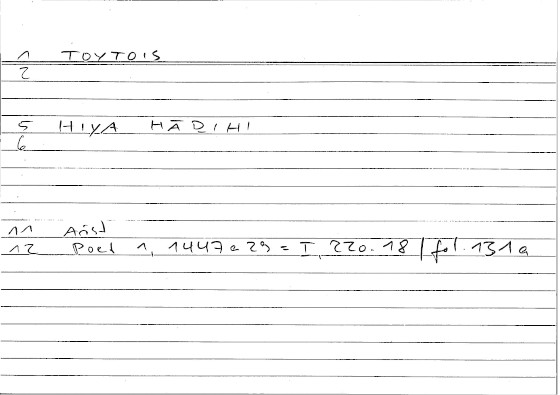 1 TOYTOIS
2
5 HIYA HĀDIHI
6
11 Arist
12 Poet 1, 1447a29 = I, 220.18 | fol. 131a